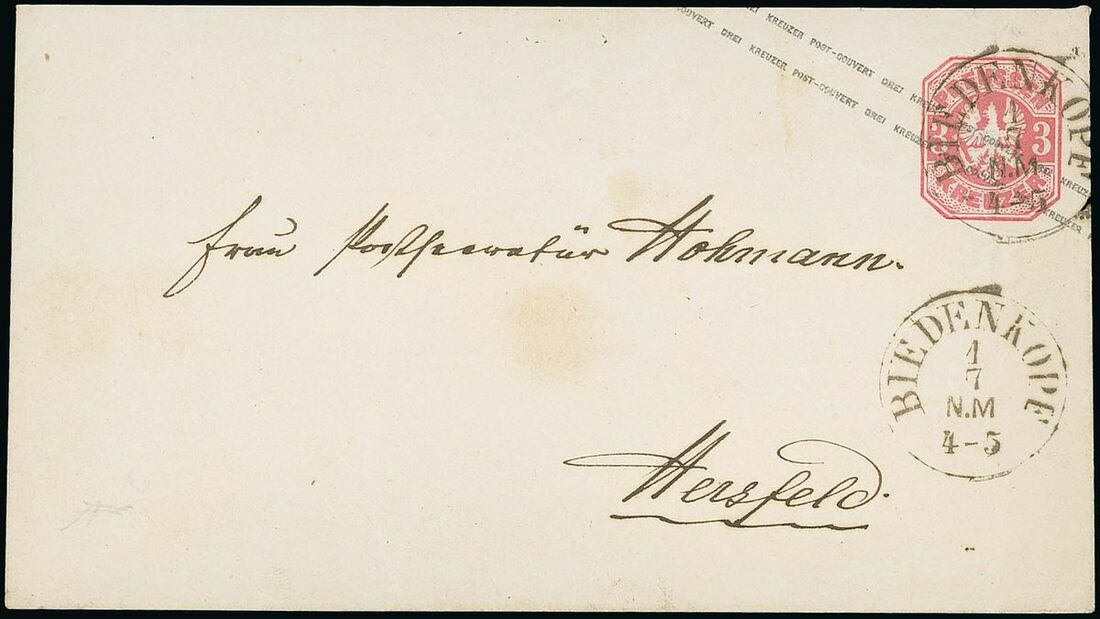 KREUZER POST-COUVERT DREI KREUZER
COUVERT DREI KREUZER POST-COUVERT DREI KREUZER
3 3
KREUZER
BIEDENKOPF
1
7
N.M
4-5
Frau Postsecretär Hohmann.
BIEDENKOPF
1
7
N.M
4-5
Hersfeld.